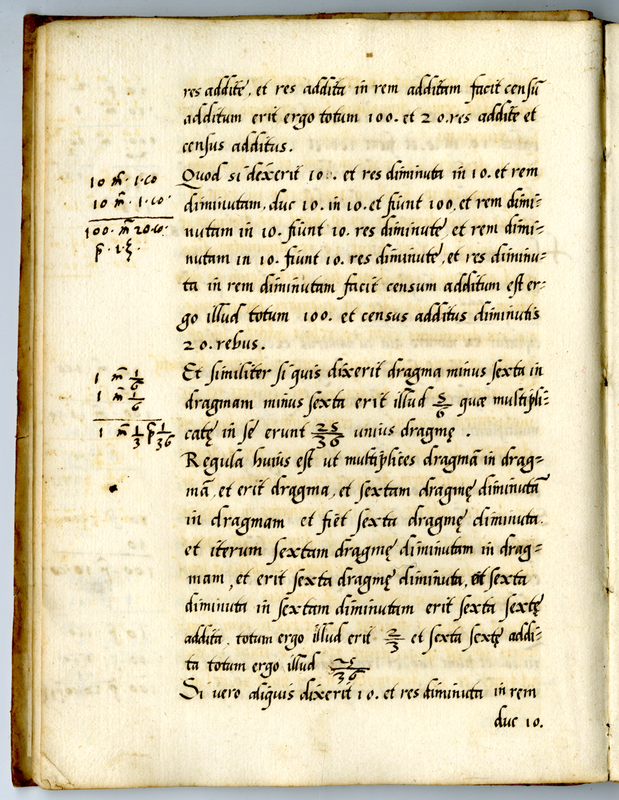 res additę, et res addita in rem additam facit censũ
additum erit ergo totum 100. et 20. res additę et
census additus.
10 m̃. 1. co
10 m̃. 1. co.
100. m̃ 20. co.
p̃. 1. ʒ.
Quod si dexerit 10. et res diminuta in 10. et rem
diminutam, duc 10. in 10. et fiunt 100. et rem dimi-
nutam in 10. fiunt 10. res diminutę, et rem dimi-
nutam in 10. fiunt 10. res diminutę, et res diminu-
ta in rem diminutam facit censum additum est er-
go illud totum 100. et census additus diminutis
20. rebus.
1 m̃ 1/6
1 m̃ 1/6
1 m̃ 1/3 p̃ 1/36
Et similiter si quis dixerit dragma minus sexta in
dragmam minus sexta erit illud 5/6 quæ multipli-
catę in se erunt 25/36 unius dragmę.
Regula huius est ut multiplices dragmã in drag-
mã, et erit dragma, et sextam dragmę diminutã
in dragmam et fiet sexta dragmę diminuta.
et iterum sextam dragmę diminutam in drag-
mam, et erit sexta dragmę diminuta, et sexta
diminuta in sextam diminutam erit sexta sextę
addita. totum ergo illud erit 2/3 et sexta sextę addi-
ta totum ergo illud 25/36
Si vero aliquis dixerit 10. et res diminuta in rem
duc 10.